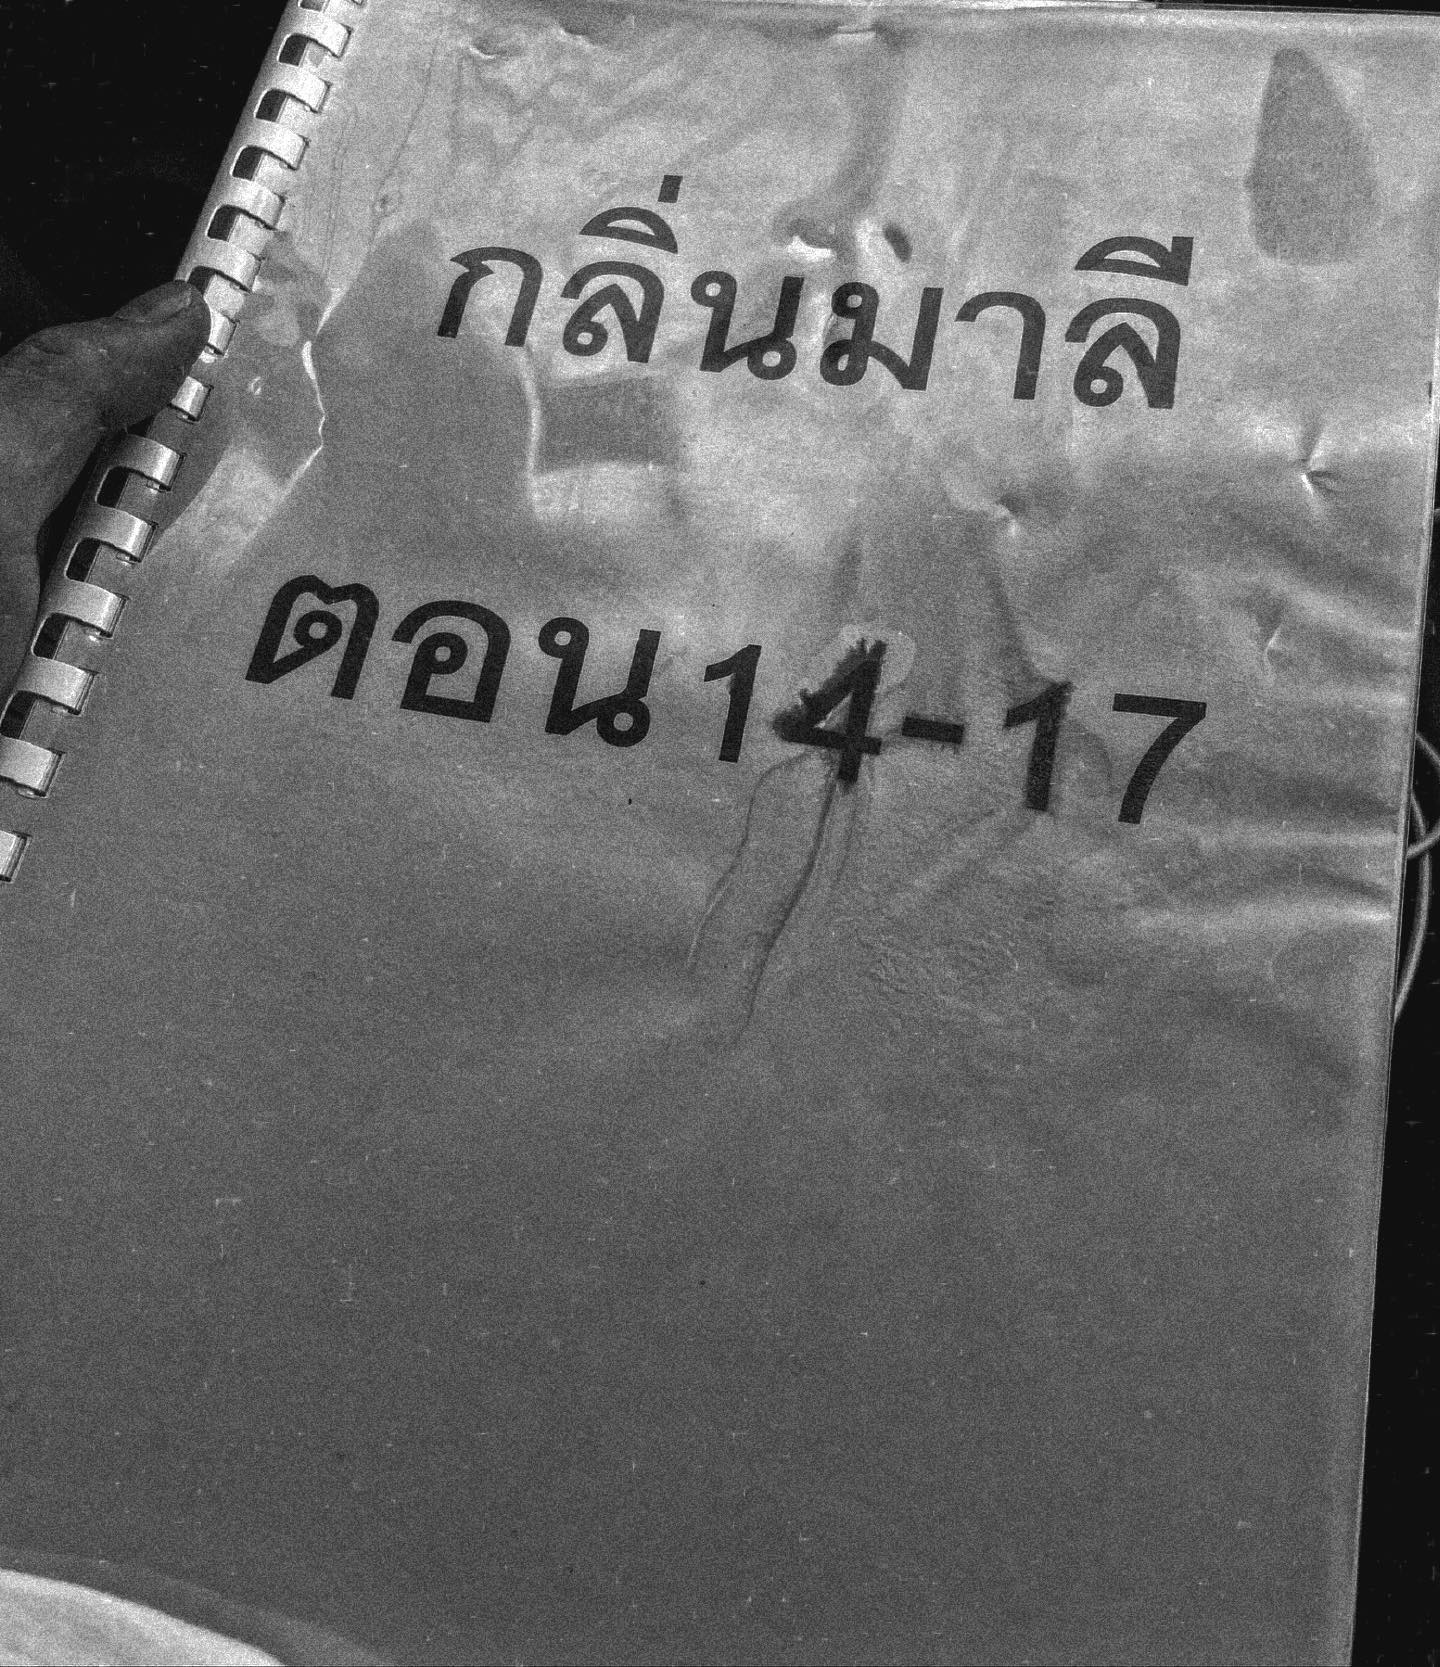 กลิ่นมาลี
ตอน 14-17